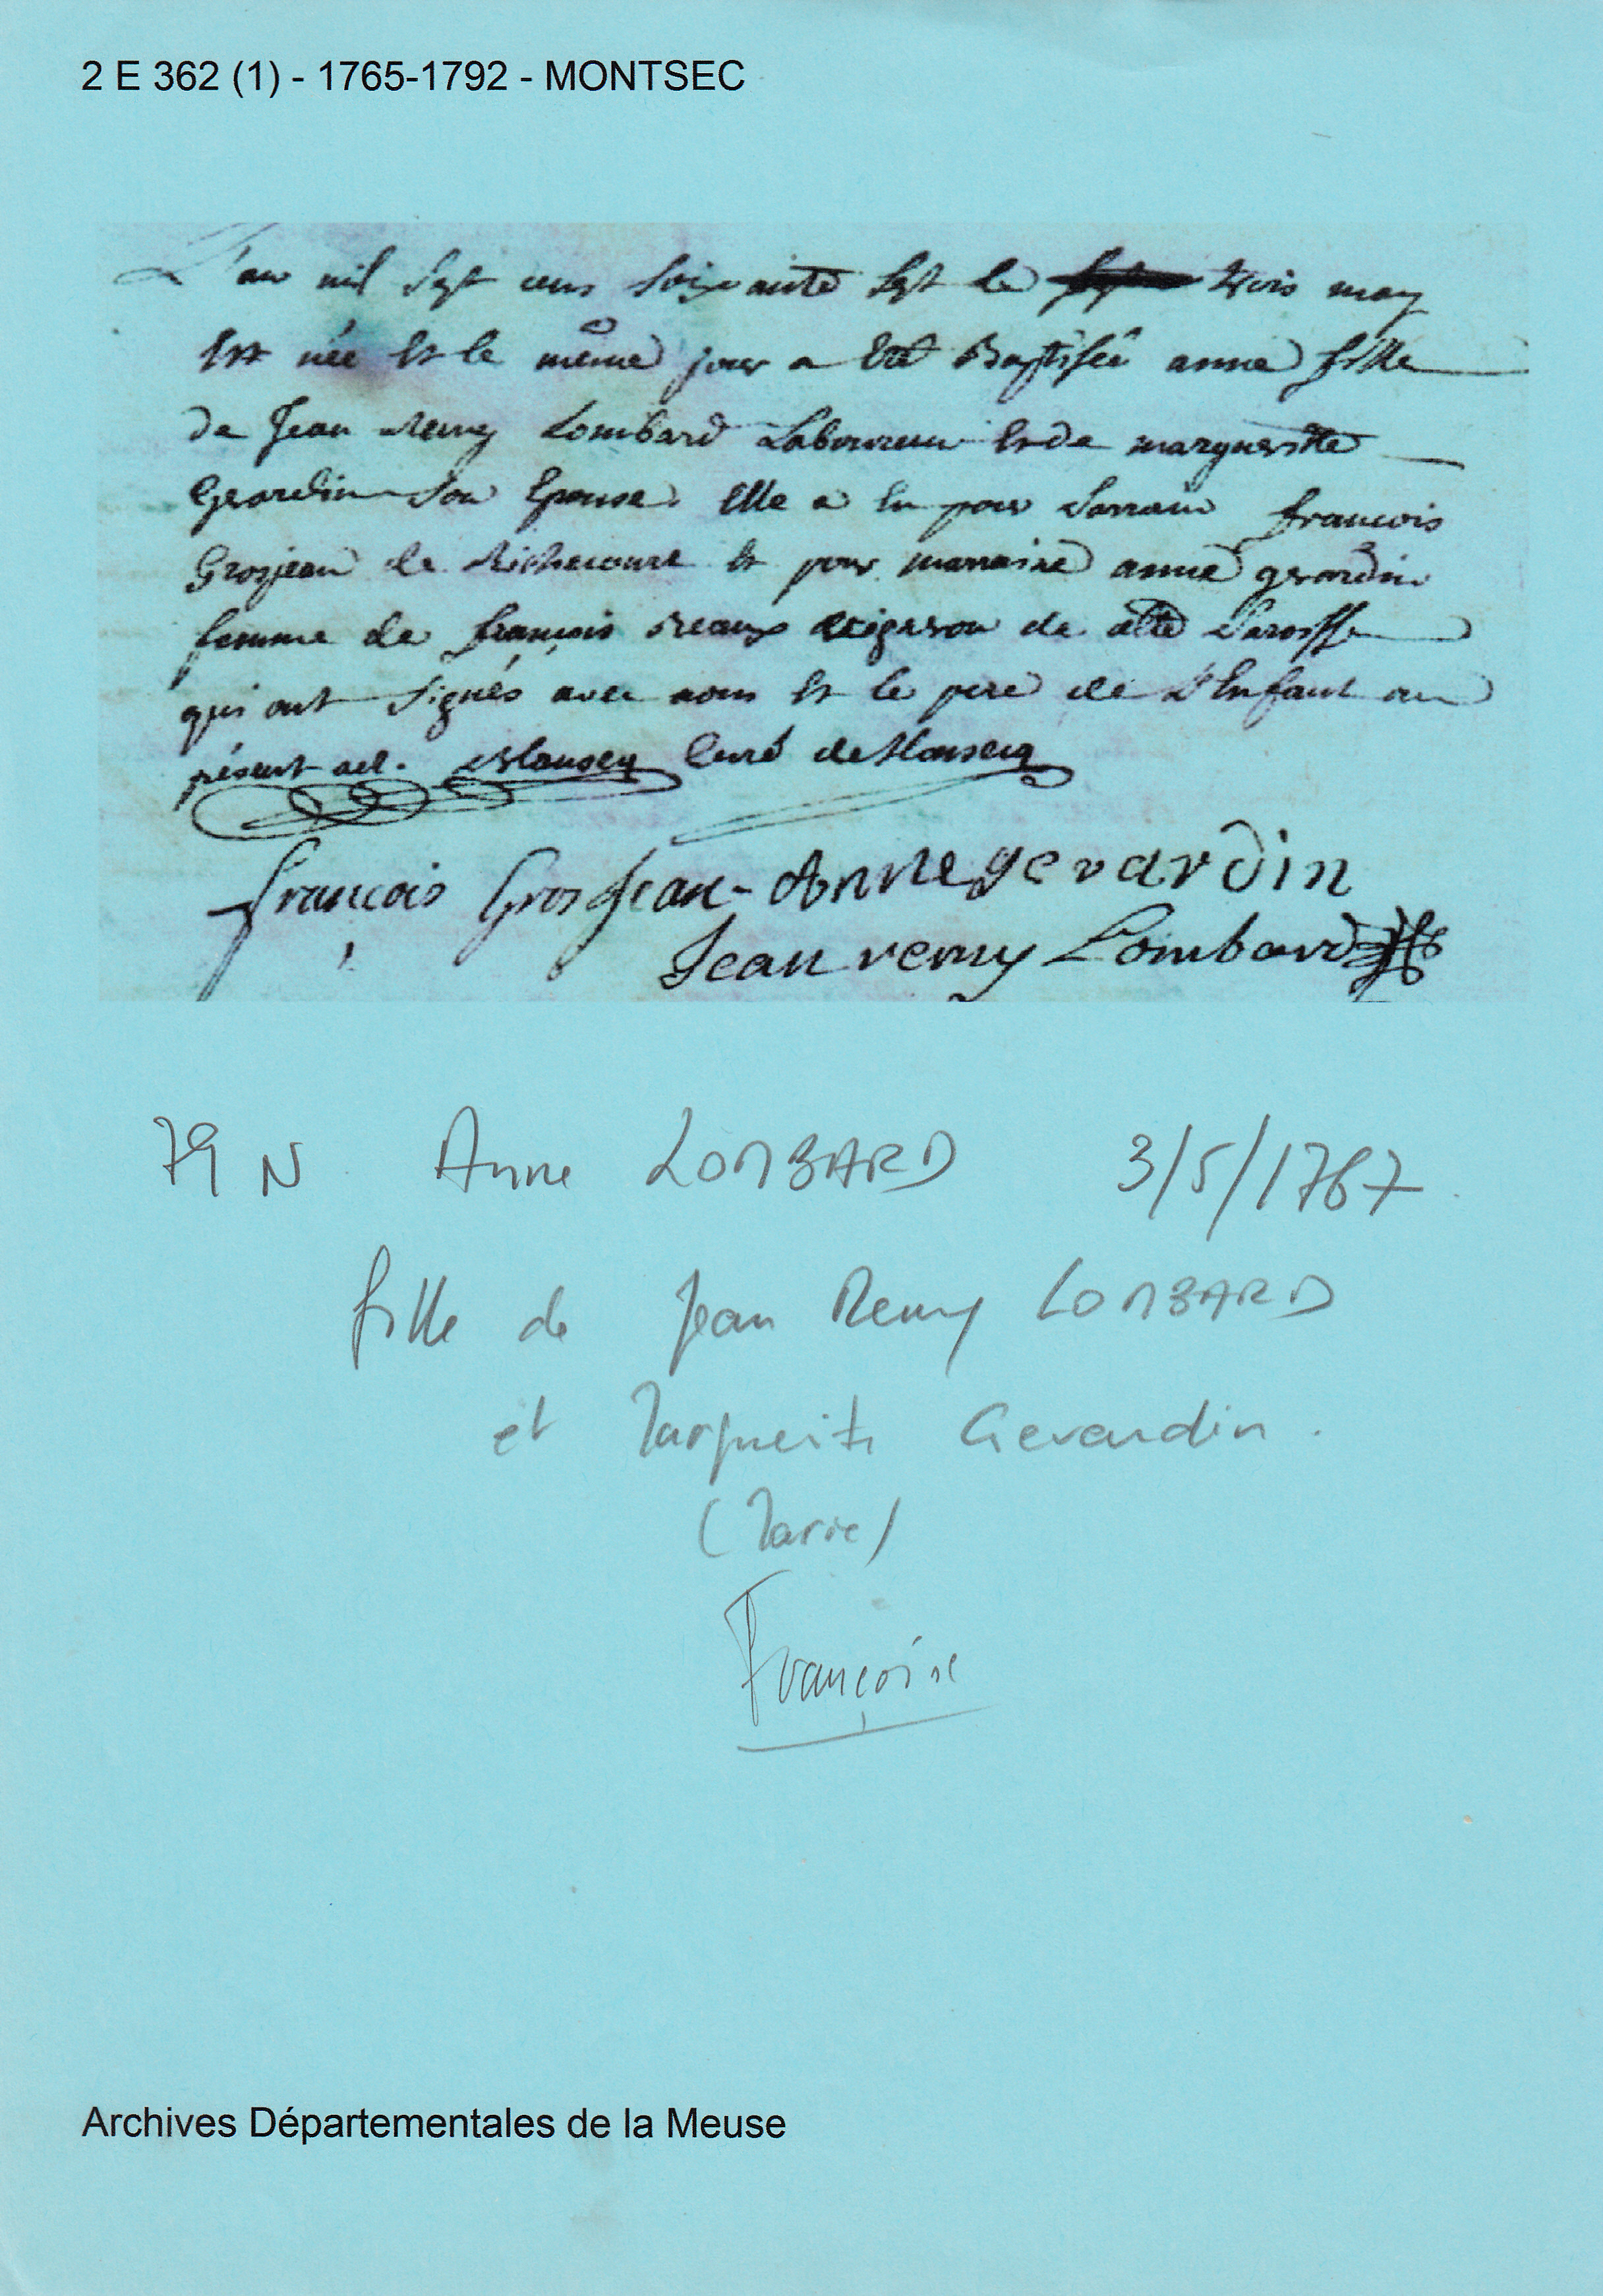 2 E 362 (1) - 1765-1792 - MONTSEC
L'an mil sept cens soixante sept le trois may
Est née Et le même jour a Eté Baptisée anne fille
de Jean Remy Lombard Laboureur Et de margueritte
Gerardin son Epouse. Elle a Eu pour Parrain francois
Grosjean de Richecourt Et pour marraine anne gerardin
femme de françois vigneron de cette Paroisse
qui ont signés avec nous Et le pere de L'Enfant au
présent act. Curé de
françois GrosJean - Anne gerardin
Jean remy Lombard
79 N Anne LOMBARD 3/5/1767
fille de Jean Remy LOMBARD
et Marguerite Gerardin.
(Marie)
Françoise
Archives Départementales de la Meuse